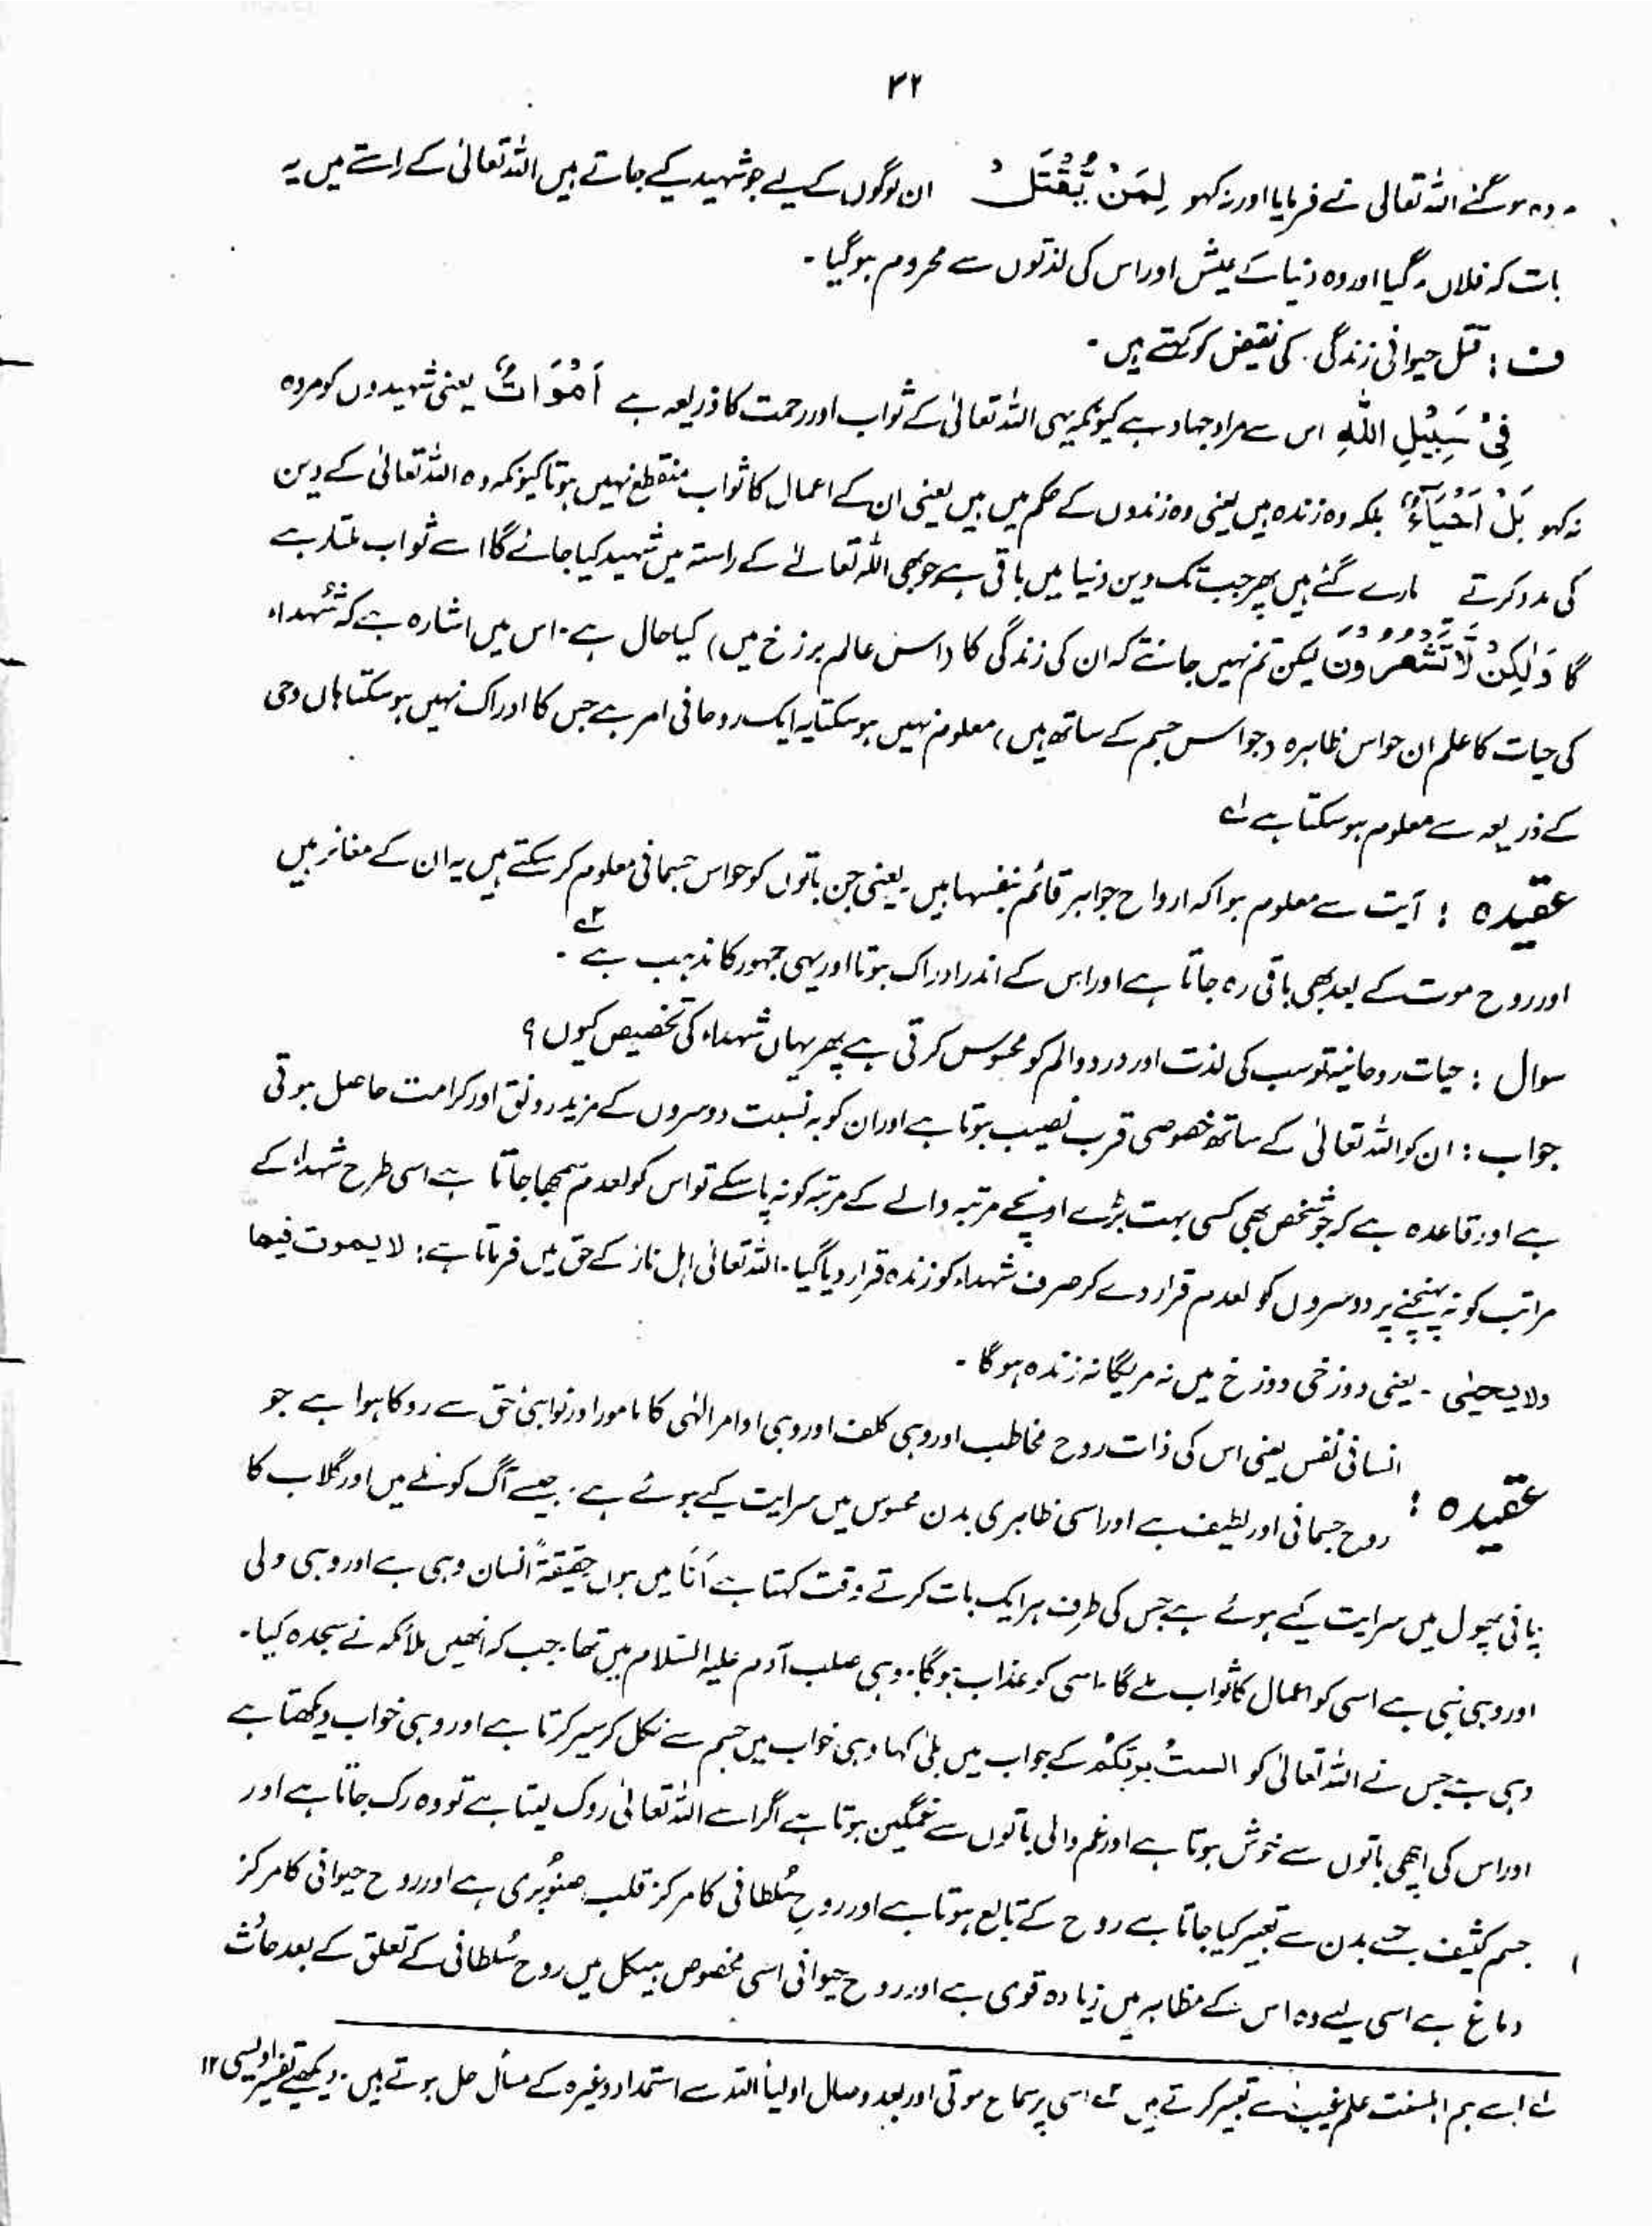 ۳۲
وہ ہوگئے اللہ تعالیٰ نے فرمایا اور نہ کہو لِمَنْ یُّقْتَلُ ان لوگوں کے لیے جو شہید کیے جاتے ہیں اللہ تعالیٰ کے راستے میں یہ
بات کہ فلاں مرگیا اور وہ دنیا کے عیش اور اس کی لذتوں سے محروم ہوگیا۔
ف : قتل حیوانی زندگی کی نقیض کو کہتے ہیں۔
فِیْ سَبِیْلِ اللّٰہِ اس سے مراد جہاد ہے کیونکہ یہی اللہ تعالیٰ کے ثواب اور رحمت کا ذریعہ ہے اَمْوَاتٌ یعنی شہیدوں کو مردہ
نہ کہو بَلْ اَحْیَآءٌ بلکہ وہ زندہ ہیں یعنی وہ زندوں کے حکم میں ہیں یعنی ان کے اعمال کا ثواب منقطع نہیں ہوتا کیونکہ وہ اللہ تعالیٰ کے دین
کی مدد کرتے مارے گئے ہیں پھر جب تک دین دنیا میں باقی ہے جو بھی اللہ تعالےٰ کے راستہ میں شہید کیا جائے گا اسے ثواب ملتا رہے
گا وَلٰکِنْ لَّا تَشْعُرُوْنَ لیکن تم نہیں جانتے کہ ان کی زندگی کا (اس عالم برزخ میں) کیا حال ہے۔ اس میں اشارہ ہے کہ شہداء
کی حیات کا علم ان حواس ظاہرہ (جو اس جسم کے ساتھ ہیں) معلوم نہیں ہوسکتا یہ ایک روحانی امر ہے جس کا ادراک نہیں ہوسکتا ہاں وحی
کے ذریعہ سے معلوم ہوسکتا ہے لہ
عقیدہ : آیت سے معلوم ہوا کہ ارواح جواہر قائم بنفسہا ہیں۔ یعنی جن باتوں کو حواس جسمانی معلوم کرسکتے ہیں یہ ان کے مغائر ہیں
اور روح موت کے بعد بھی باقی رہ جاتا ہے اور اس کے اندر ادراک ہوتا اور یہی جمہور کا مذہب ہے ۲ہ۔
سوال : حیات روحانیہ تو سب کی لذت اور درد و الم کو محسوس کرتی ہے پھر یہاں شہداء کی تخصیص کیوں ؟
جواب : ان کو اللہ تعالیٰ کے ساتھ خصوصی قرب نصیب ہوتا ہے اور ان کو بہ نسبت دوسروں کے مزید رونق اور کرامت حاصل ہوتی
ہے اور قاعدہ ہے کہ جو شخص بھی کسی بہت بڑے اونچے مرتبہ والے کے مرتبہ کو نہ پا سکے تو اس کو لعدم سمجھا جاتا ہے اسی طرح شہداء کے
مراتب کو نہ پہنچنے پر دوسروں کو لعدم قرار دے کر صرف شہداء کو زندہ قرار دیا گیا۔ اللہ تعالیٰ اہل نار کے حق میں فرماتا ہے : لا یموت فیہا
ولا یحییٰ۔ یعنی دوزخی دوزخ میں نہ مریگا نہ زندہ ہوگا۔
انسانی نفس یعنی اس کی ذات روح مخاطب اور وہی مکلف اور وہی اوامر الٰہی کا مامور اور نواہئ حق سے روکا ہوا ہے جو
عقیدہ : روح جسمانی اور لطیف ہے اور اسی ظاہری بدن محسوس میں سرایت کیے ہوئے ہے۔ جیسے آگ کوئلے میں اور گلاب کا
پانی پھول میں سرایت کیے ہوئے ہے جس کی طرف ہر ایک بات کرتے وقت کہتا ہے اَنَا میں ہوں حقیقۃً انسان وہی ہے اور وہی ولی
اور وہی نبی ہے اسی کو اعمال کا ثواب ملے گا۔ اسی کو عذاب ہوگا۔ وہی صلب آدم علیہ السّلام میں تھا۔ جب کہ انھیں ملائکہ نے سجدہ کیا۔
وہی ہے جس نے اللہ تعالیٰ کو الستُ بربّکم کے جواب میں بلیٰ کہا وہی خواب میں جسم سے نکل کر سیر کرتا ہے اور وہی خواب دیکھتا ہے
اور اس کی اچھی باتوں سے خوش ہوتا ہے اور غم والی باتوں سے غمگین ہوتا ہے اگر اسے اللہ تعالیٰ روک لیتا ہے تو وہ رک جاتا ہے اور
جسم کثیف جسے بدن سے تعبیر کیا جاتا ہے روح کے تابع ہوتا ہے اور روح سُلطانی کا مرکز قلب صنوبری ہے اور روح حیوانی کا مرکز
دماغ ہے اسی لیے وہ اس کے مظاہر میں زیادہ قوی ہے اور روح حیوانی اسی مخصوص ہیکل میں روح سُلطانی کے تعلق کے بعد حادث
لہ اسے ہم اہلسنت علم غیب سے تعبیر کرتے ہیں ۲ہ اسی پر سماع موتٰی اور بعد وصال اولیأ اللہ سے استمداد وغیرہ کے مسائل حل ہوتے ہیں۔ دیکھیے تفسیر اویسی ۱۲